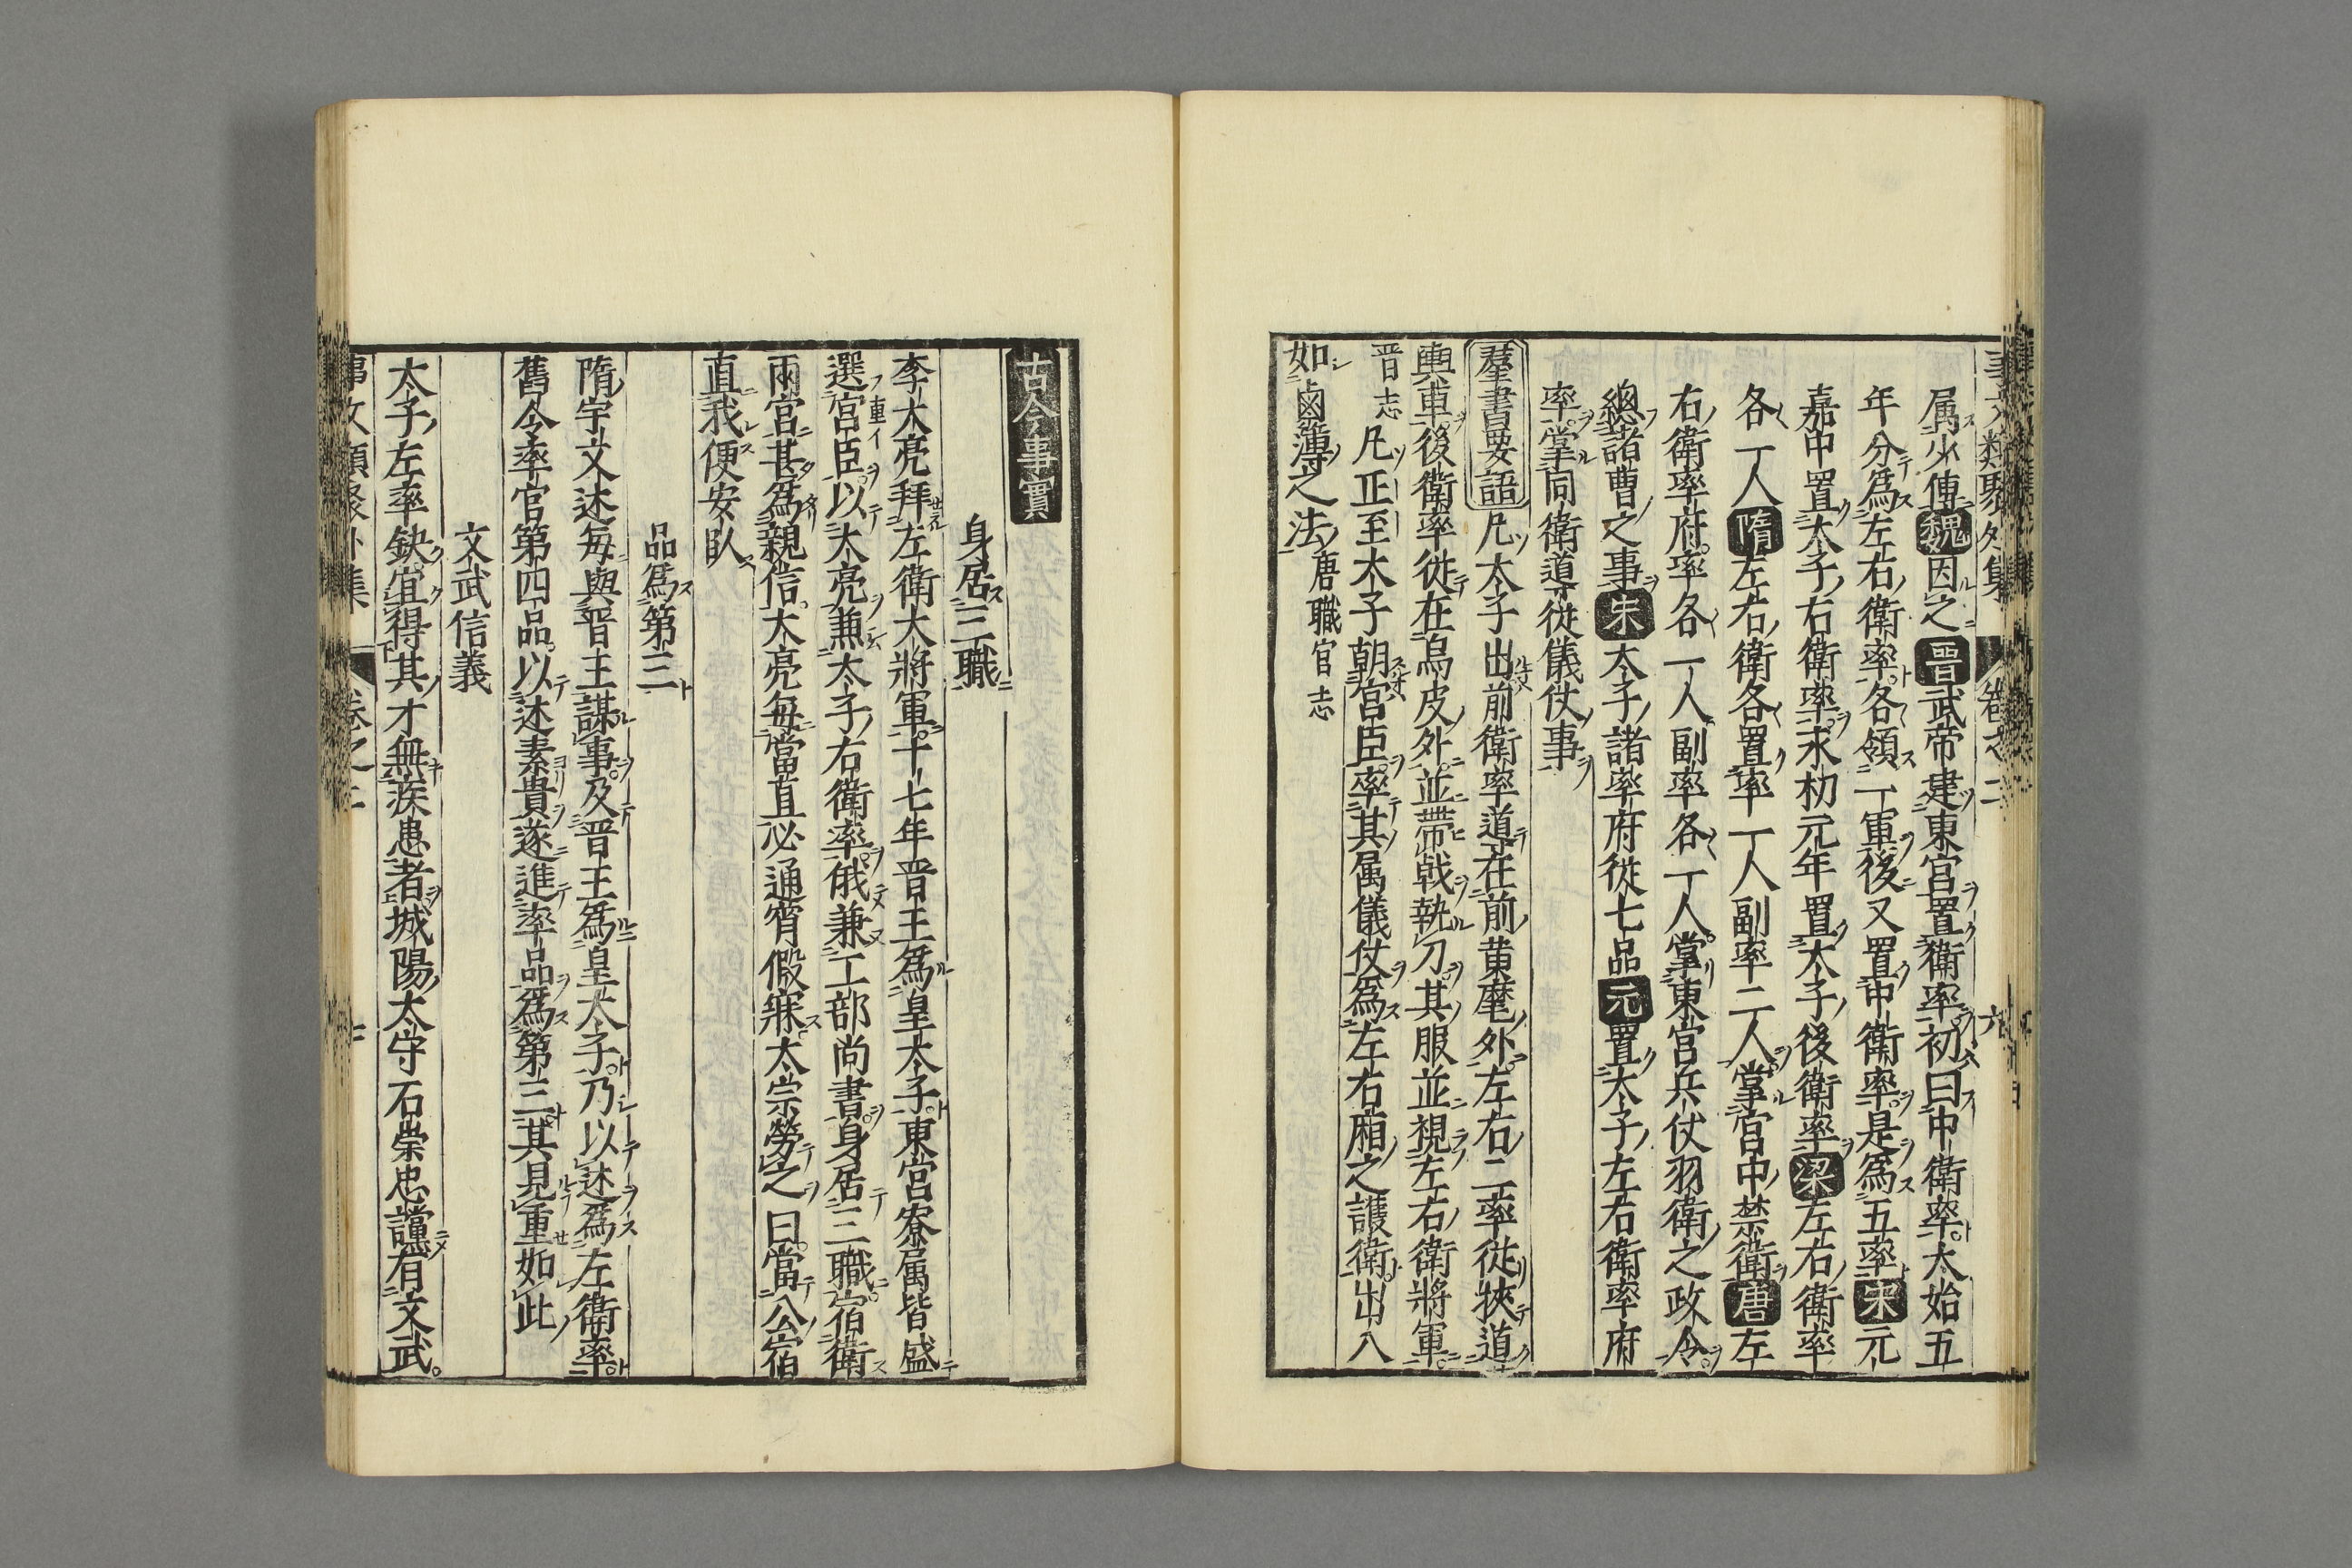 事文類聚外集 卷之二 六
属少傅魏因之晋武帝建東宮置衛率初曰中衛率太始五
年分爲左右衛率各領一軍後又置中衛率是爲五率宋元
嘉中置太子右衛率永初元年置太子後衛率梁左右衛率
各一人隋左右衛各置率一人副率二人掌宮中禁衛唐左
右衛率府率各一人副率各一人掌東宮兵仗羽衛之政令
總諸曹之事宋太子諸率府從七品元置太子左右衛率府
率掌同衛道從儀仗事
羣書要語凡太子出前衛率道在前黄麾外左右二率從挾道
輿車後衛率從在烏皮外並帶戟執刀其服並視左右衛將軍
晋志凡正至太子朝宮臣率其属儀仗爲左右廂之護衛出入
如鹵簿之法唐職官志
古今事實
身居三職
李大亮拜左衛大將軍十七年晋王爲皇太子東宮寮属皆盛
選宮臣以大亮兼太子右衛率俄兼工部尚書身居三職宿衛
兩宮甚爲親信大亮每當直必通宵假寐太宗勞之曰當公宿
直我便安臥
品爲第三
隋宇文述每與晋王謀事及晋王爲皇太子乃以述爲左衛率
舊令率官第四品以述素貴遂進率品爲第三其見重如此
文武信義
太子左率缺宜得其才無疾患者城陽太守石崇忠讜有文武
事文類聚外集 卷之二